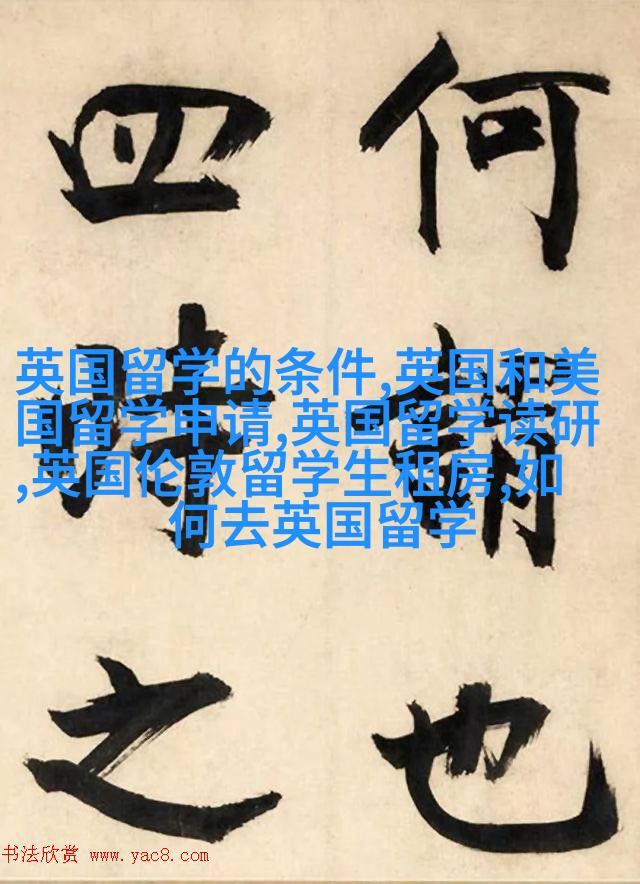 何謂也
四時之
英国留学的条件,英国和美
国留学申请,英国留学读研
,英国伦敦留学生租房,如
何去英国留学
书法欣赏 www.yac8.com